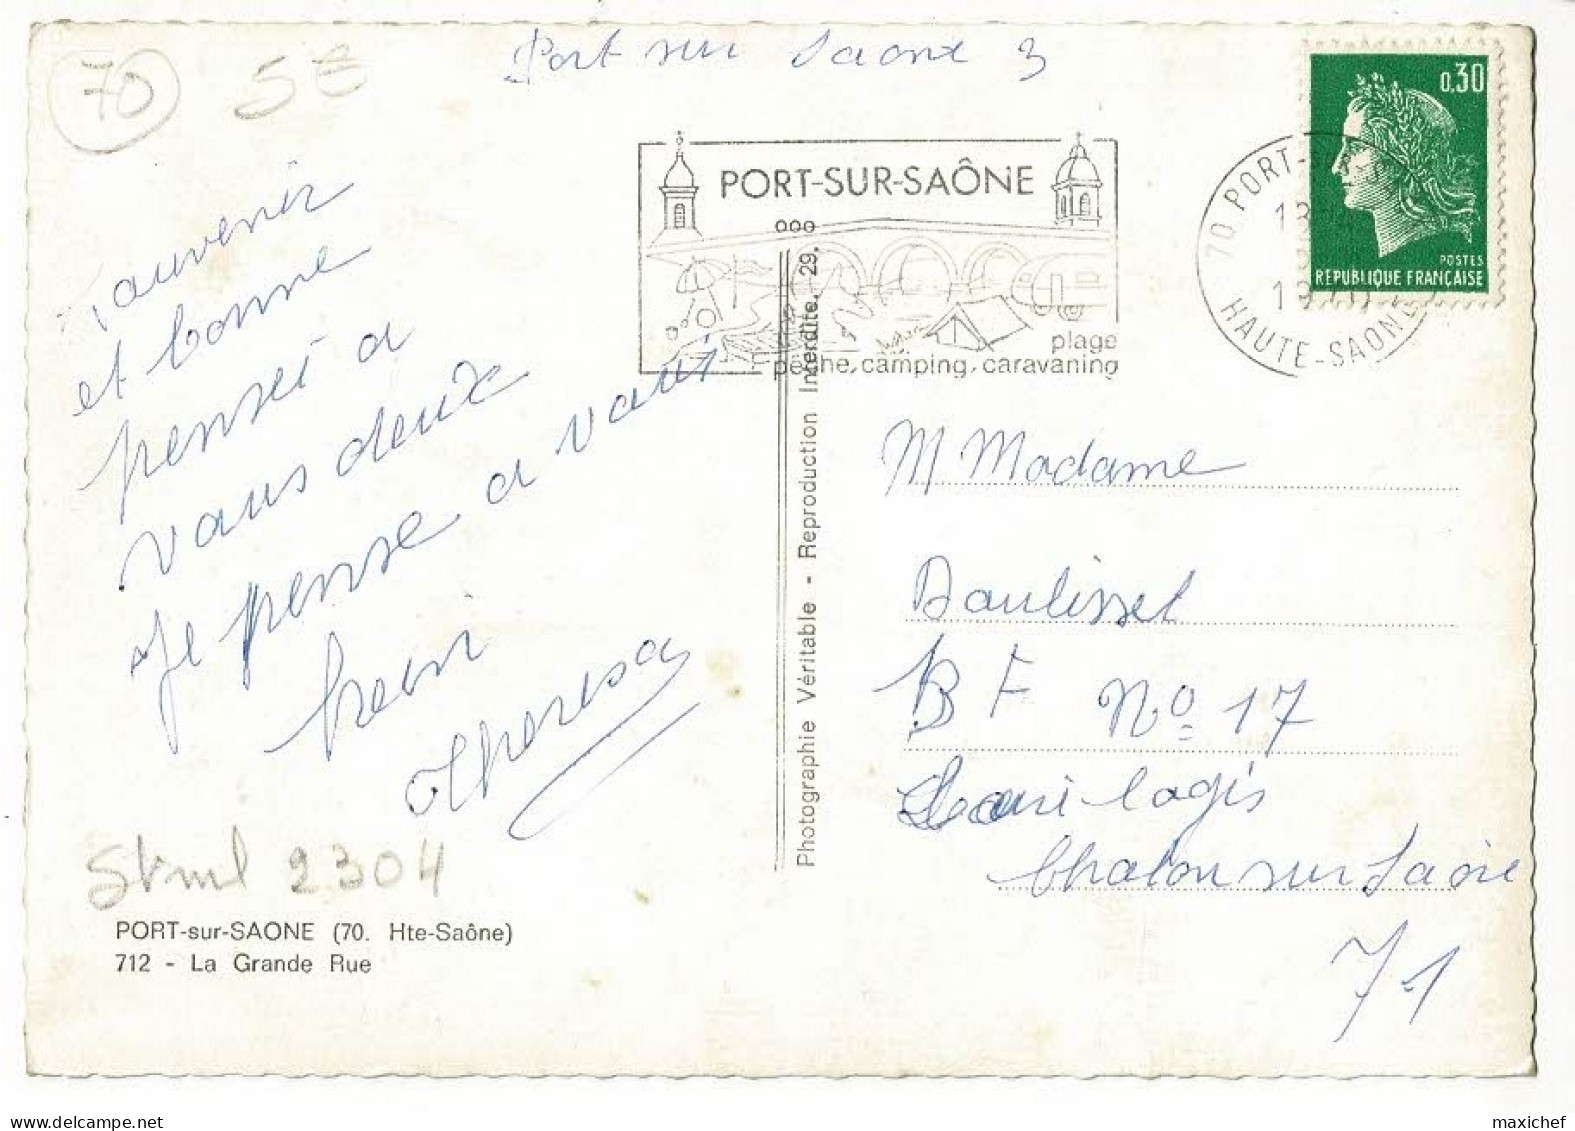 70
5€
Port sur Saone 3
0,30
POSTES
REPUBLIQUE FRANÇAISE
PORT-SUR-SAÔNE
plage
pêche, camping, caravaning
70 PORT-
HAUTE-SAONE
souvenir
et bonne
penseé a
vous deux
Je pense a vous
Theresa
Photographie Véritable - Reproduction Interdite. 29.
M Madame
Daulisset
B F No 17
logis
Chalon sur Saône
71
2304
PORT-sur-SAONE (70. Hte-Saône)
712 - La Grande Rue
www.delcampe.net
maxichef